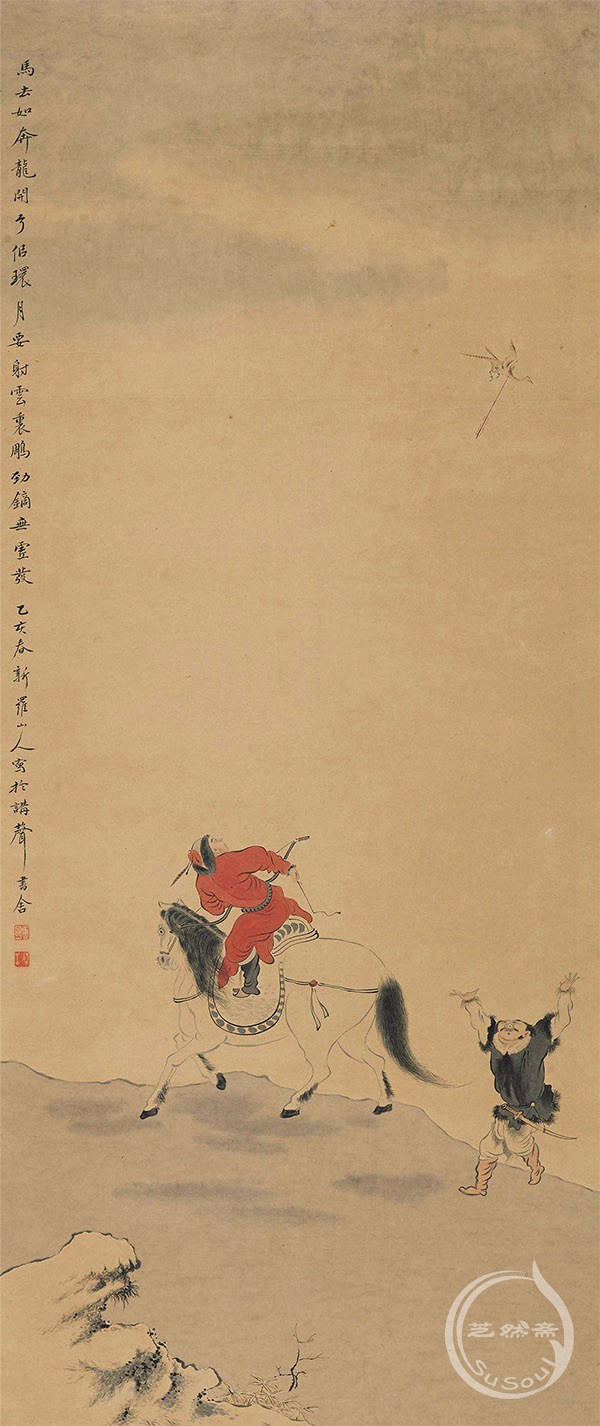 馬去如奔龍開弓佀環月要射雲裏鵰勁鏑無虛發 乙亥春新羅山人寫於講聲書舍
芝然斋
SuSoul